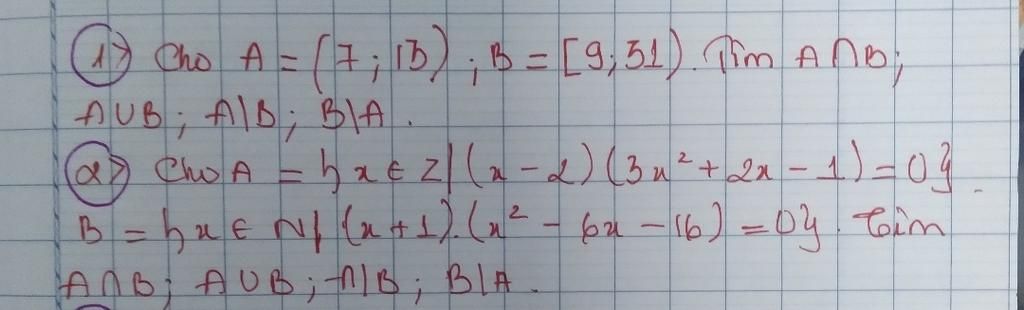 1) Cho A = (7; 15); B = [9; 31). Tìm A∩B;
A∪B; A\B; B\A.
2) Cho A = {x ∈ Z | (x - 2)(3x² + 2x - 1) = 0}.
B = {x ∈ N | (x + 1).(x² - 6x - 16) = 0}. Tìm
A∩B; A∪B; A\B; B\A.